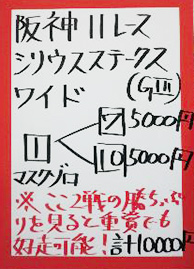 阪神11レース
シリウスステークス
(GIII)
ワイド
1 < 7 5000円
10 5000円
マスクゾロ
※ここ2戦の勝ちっぷ
りを見ると重賞でも
好走可能！計10000円